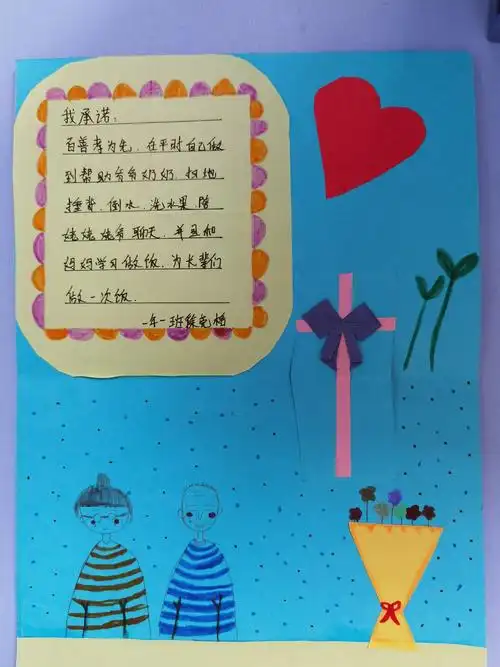 我承诺：
百善孝为先，在平时自己做
到帮助爷爷奶奶，扫地
捶背、倒水、洗水果、陪
姥姥姥爷聊天，并且和
妈妈学习做饭，为长辈们
做一次饭．
一年一班